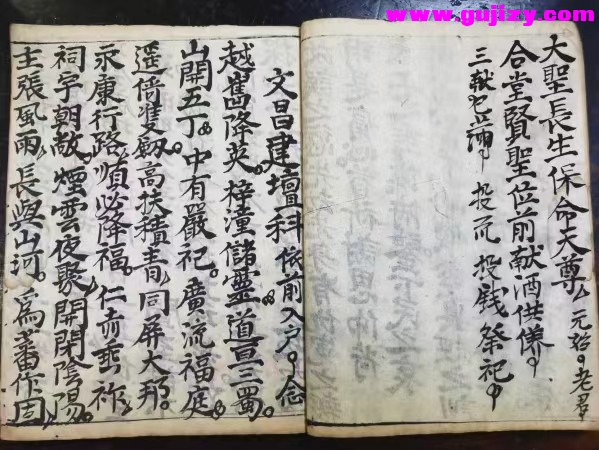 www.gujizy.com
大聖長生保命天尊 元始 老君
合堂賢聖位前献酒供養
三献已滿 投 投錢祭祀
文昌建壇科 依前入户 念
越嶲降英 梓潼儲靈 道亘三蜀
山開五丁 中有嚴祀 廣流福庭
遥倚雙劔 高扶積青 同屏大邦
永康行路 順必降福 仁亦垂祚
祠宇朝敞 煙雲夜聚 開閉陰陽
主張風雨 長與山河 爲蕃作固